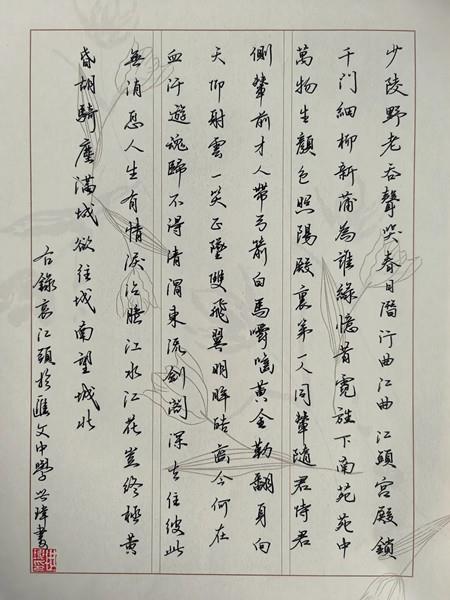 少陵野老吞聲哭春日潛行曲江曲江頭宮殿鎖
千門細柳新蒲為誰綠憶昔霓旌下南苑苑中
萬物生顏色照陽殿裏第一人同輦隨君侍君
側輦前才人帶弓箭白馬嚼嚙黃金勒翻身向
天仰射雲一笑正墜雙飛翼明眸皓齒今何在
血汙遊魂歸不得清渭東流劍閣深去住彼此
無消息人生有情淚沾臆江水江花豈終極黃
昏胡騎塵滿城欲往城南望城北
右錄哀江頭於匯文中學書